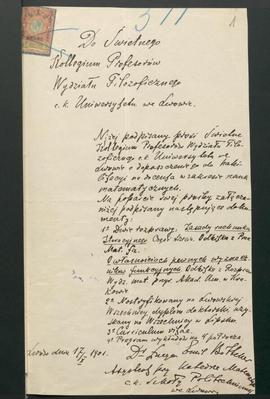 1
Do Świetnego
Kollegium Profesorów
Wydziału Filozoficznego
c.k. Uniwersytetu we Lwowie.
Niżej podpisany prosi Świetne
Kollegium Profesorów Wydziału Filo-
zoficznego c.k. Uniwersytetu we
Lwowie o dopuszczenie do habi-
litacyi na docenta w zakresie nauk
matematycznych.
Na poparcie swej prośby załącza
niżej podpisany następujące doku-
menty:
1º Dwie rozprawy. Zasady rachunku
Część
Mat. fiz.
O własnościach pewnych wyznacz-
ników funkcyjnych Odbitka z Rozpraw
Wydz. mat. przyr. Akad. Um. w Kra-
kowie.
2º Nostryfikowany na lwowskiej
Wszechnicy dyplom doktorski uzy-
skany na Wszechnicy w Lipsku.
3º Curriculum vitae.
4º Program wykładów na
Lwów dnia 17/ 1901.
Dr. Emil
Asystent przy Katedrze Matematyki
c.k. Szkoły Politechnicznej
we Lwowie